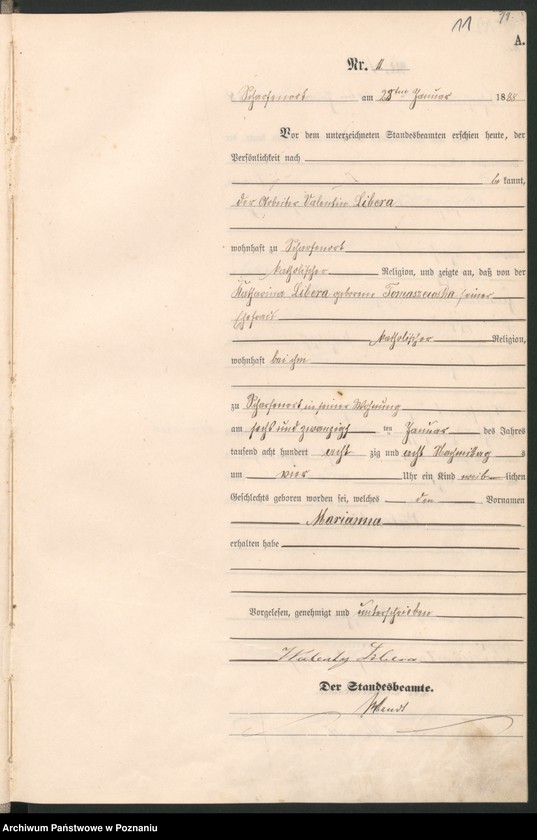 11
A.
Nr. 11
Scharfenort am 28ten Januar 1888
Vor dem unterzeichneten Standesbeamten erschien heute, der
Persönlichkeit nach
be kannt,
der Arbeiter Valentin Libera
wohnhaft zu Scharfenort
katholischer Religion, und zeigte an, daß von der
Katharina Libera geborene Tomaszewska seiner
Ehefrau
katholischer Religion,
wohnhaft bei ihm
zu Scharfenort in seiner Wohnung
am sechs und zwanzigs ten Januar des Jahres
tausend acht hundert acht zig und acht Nachmittag s
um vier Uhr ein Kind weib lichen
Geschlechts geboren worden sei, welches den Vornamen
Marianna
erhalten habe
Vorgelesen, genehmigt und unterschrieben
Walenty Libera
Der Standesbeamte.
Archiwum Państwowe w Poznaniu